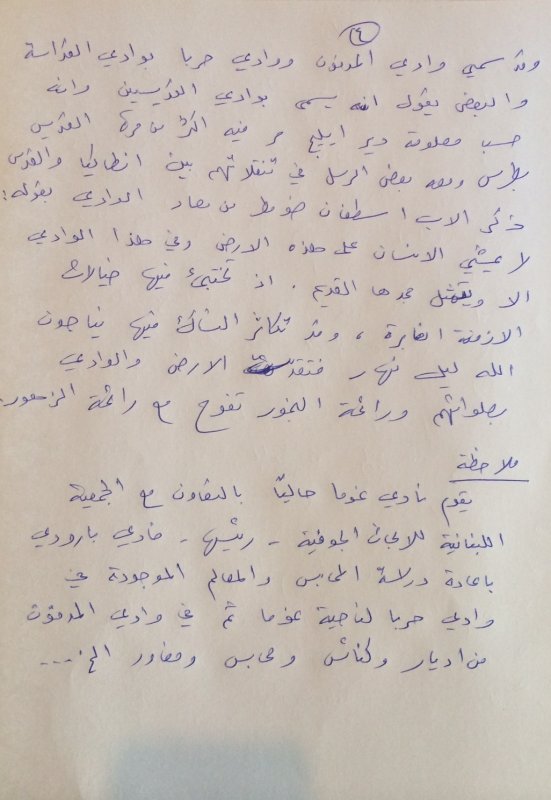 ٤
وقد سمي وادي المدفون ووادي حربا بوادي القداسة
والبعض يقول انه يسمى بوادي القديسين وانه
حسب معلومة دير ايليج مر فيه اكثر من مرة القديس
بطرس ومعه بعض الرسل في تنقلاتهم بين انطاكيا والقدس
ذكر الاب اسطفان ضو ط من معاد الوادي بقوله:
لا يمشي الانسان على هذه الارض وفي هذا الوادي
الا ويتمثل مجدها القديم. اذ تختبئ فيها خيالات
الازمنة الغابرة، وقد تكاثر النساك فيها يناجون
الله ليل نهار فتقدست الارض والوادي
بصلواتهم ورائحة البخور تفوح مع رائحة الزهور.
ملاحظة
يقوم نادي غوما حالياً بالتعاون مع الجمعية
اللبنانية للابحاث الجوفية - رئيسها - فادي بارودي
باعادة دراسة المحابس والمعالم الموجودة في
وادي حربا لناحية غوما ثم في وادي المدفون
من اديار وكنائس ومحابس ومغاور الخ....